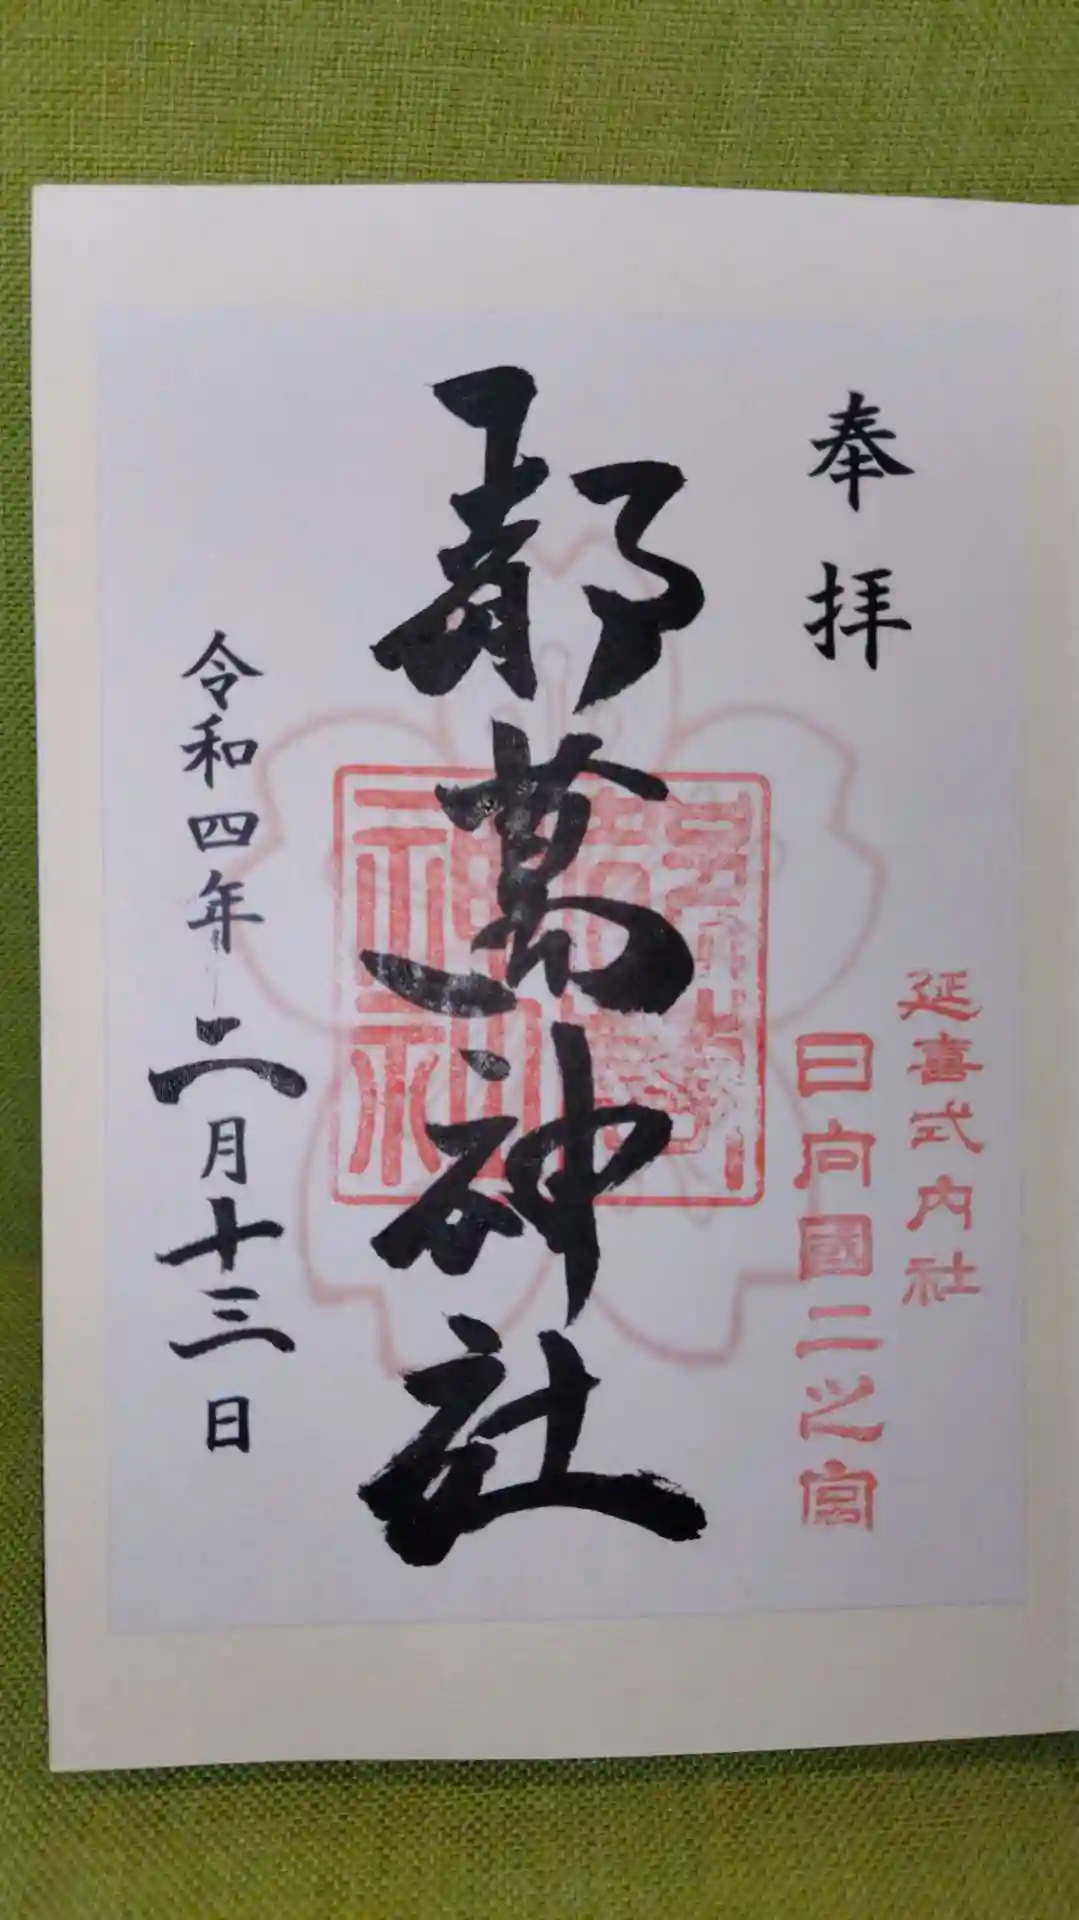 奉拝
延喜式内社
日向國二之宮
都萬神社
令和四年二月十三日